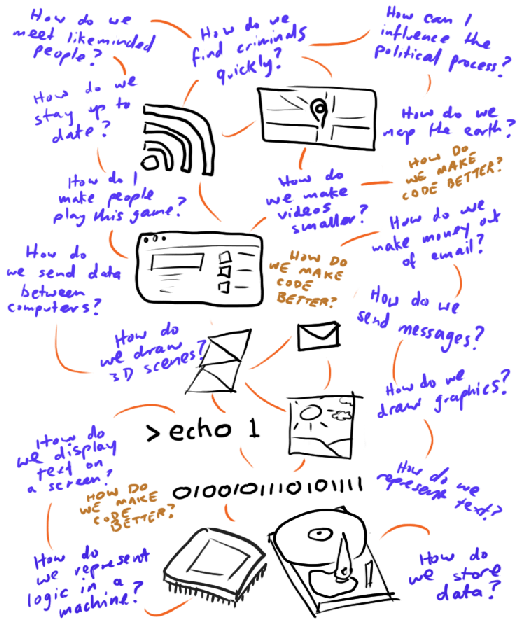 How do we
meet likeminded
people?
How do we
find criminals
quickly?
How can I
influence the
political process?
How do we
stay up to
date?
How do we
map the earth?
HOW DO
WE MAKE
CODE BETTER?
How do I
make people
play this game?
How do
we make
videos
smaller?
How do we
make money out
of email?
How do
we send data
between
computers?
HOW DO
WE MAKE
CODE
BETTER?
How do we
send messages?
How do
we draw
3D scenes?
How do we
draw graphics?
> echo 1
How do
we display
text on
a screen?
HOW DO
WE MAKE
CODE
BETTER?
010010111010111
How do we
represent text?
How do
we represent
logic in a
machine?
How do
we store
data?